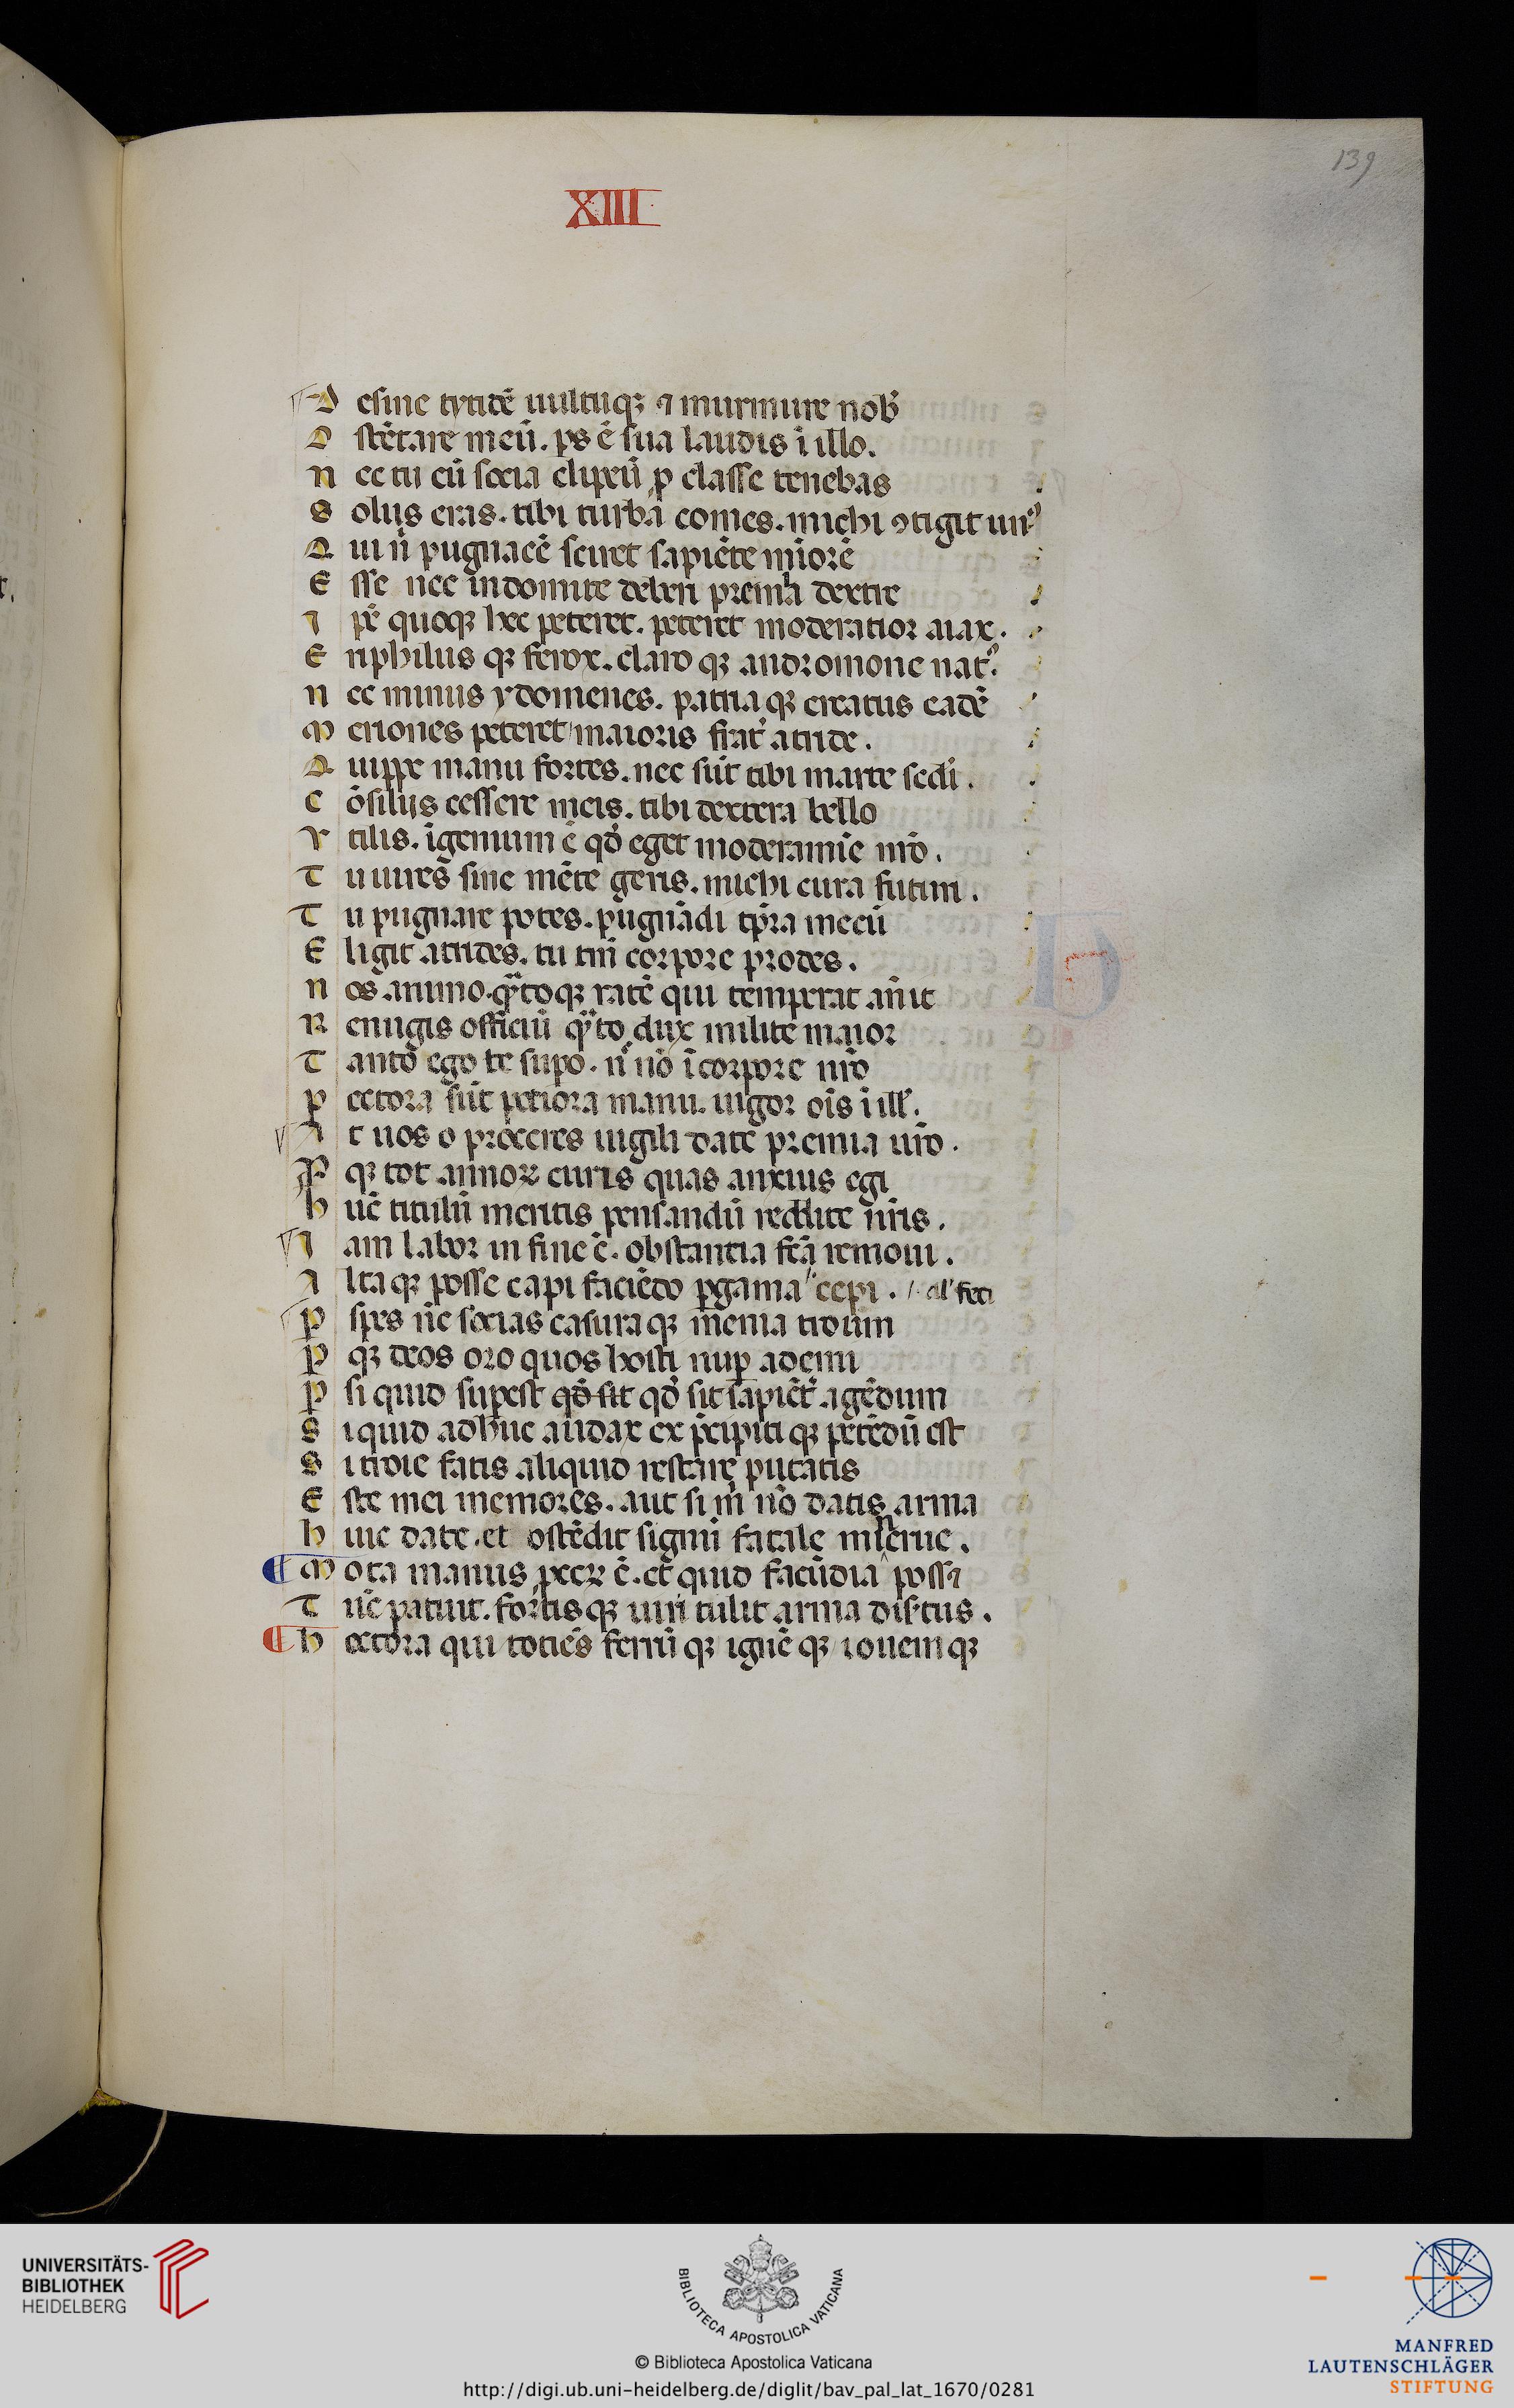 139
XIII
D esine tytidē uultuqꝫ ⁊ murmure nob̄
O stētare meū. ps ē sua laudis ī illo.
N ec tu cū socia clipeū ꝓ classe tenebas
S olus eras. tibi turba comes. michi ꝯtigit unꝰ
Q ui n̄ pugnacē sciret sapiēte mīorē
E sse nec indomite deberi premia dextre
I pē quoqꝫ hec peteret. peteret moderatior aiax.
E riphilus qꝫ ferox. claro qꝫ andromone natꝰ.
N ec minus ydomenes. patria qꝫ creatus eadē
M eriones peteret maioris frat̄ atride.
Q uippe manu fortes. nec sūt tibi marte scd̄i.
C ōsilijs cessere meis. tibi dextera bello
V tilis. īgenium ē qd̄ eget moderamīe nr̄o.
T u uires sine mēte geris. michi cura futuri.
T u pugnare potes. pugnādi tp̄ra mecū
E ligit atrides. tu tm̄ corpore prodes.
N os animo. qᵃ̄toqꝫ ratē qui temperat an̄it
R emigis officiū qᵃ̄to dux milite maior
T anto ego te suꝑo. n̄ nō ī corpore nr̄o
P ectora sūt petiora manu. uigor oīs ī ill̄.
A t uos o proceres uigili date premia ur̄o.
P qꝫ tot annoꝝ curis quas anxius egi
H ūc titulū meritis pensandū reddite nr̄is.
I am labor in fine ē. obstantia fc̄a remoui.
A lta qꝫ posse capi faciēdo ꝑgama cepi. al' feci
P spes n̄c socias casura qꝫ menia troum
P qꝫ deos oro quos hosti nuꝑ ademi
P si quid suꝑest qd̄ sit qd̄ sit sapiēt̄ agēdum
S i quid adhuc audax ex p̄cipiti qꝫ petēdū est
S i troie fatis aliquid restare putatis
E ste mei memores. aut si m̄ nō datis arma
H uic date. et ostēdit signū fatale minerue.
M ota manus peeꝝ ē. et quid facūdia poss⁊
T ūc patuit. fortis qꝫ uiri tulit arma disertus.
H ectora qui totiēs ferrū qꝫ ignē qꝫ iouem qꝫ
UNIVERSITÄTS-
BIBLIOTHEK
HEIDELBERG
BIBLIOTECA APOSTOLICA VATICANA
© Biblioteca Apostolica Vaticana
http://digi.ub.uni-heidelberg.de/diglit/bav_pal_lat_1670/0281
MANFRED
LAUTENSCHLÄGER
STIFTUNG